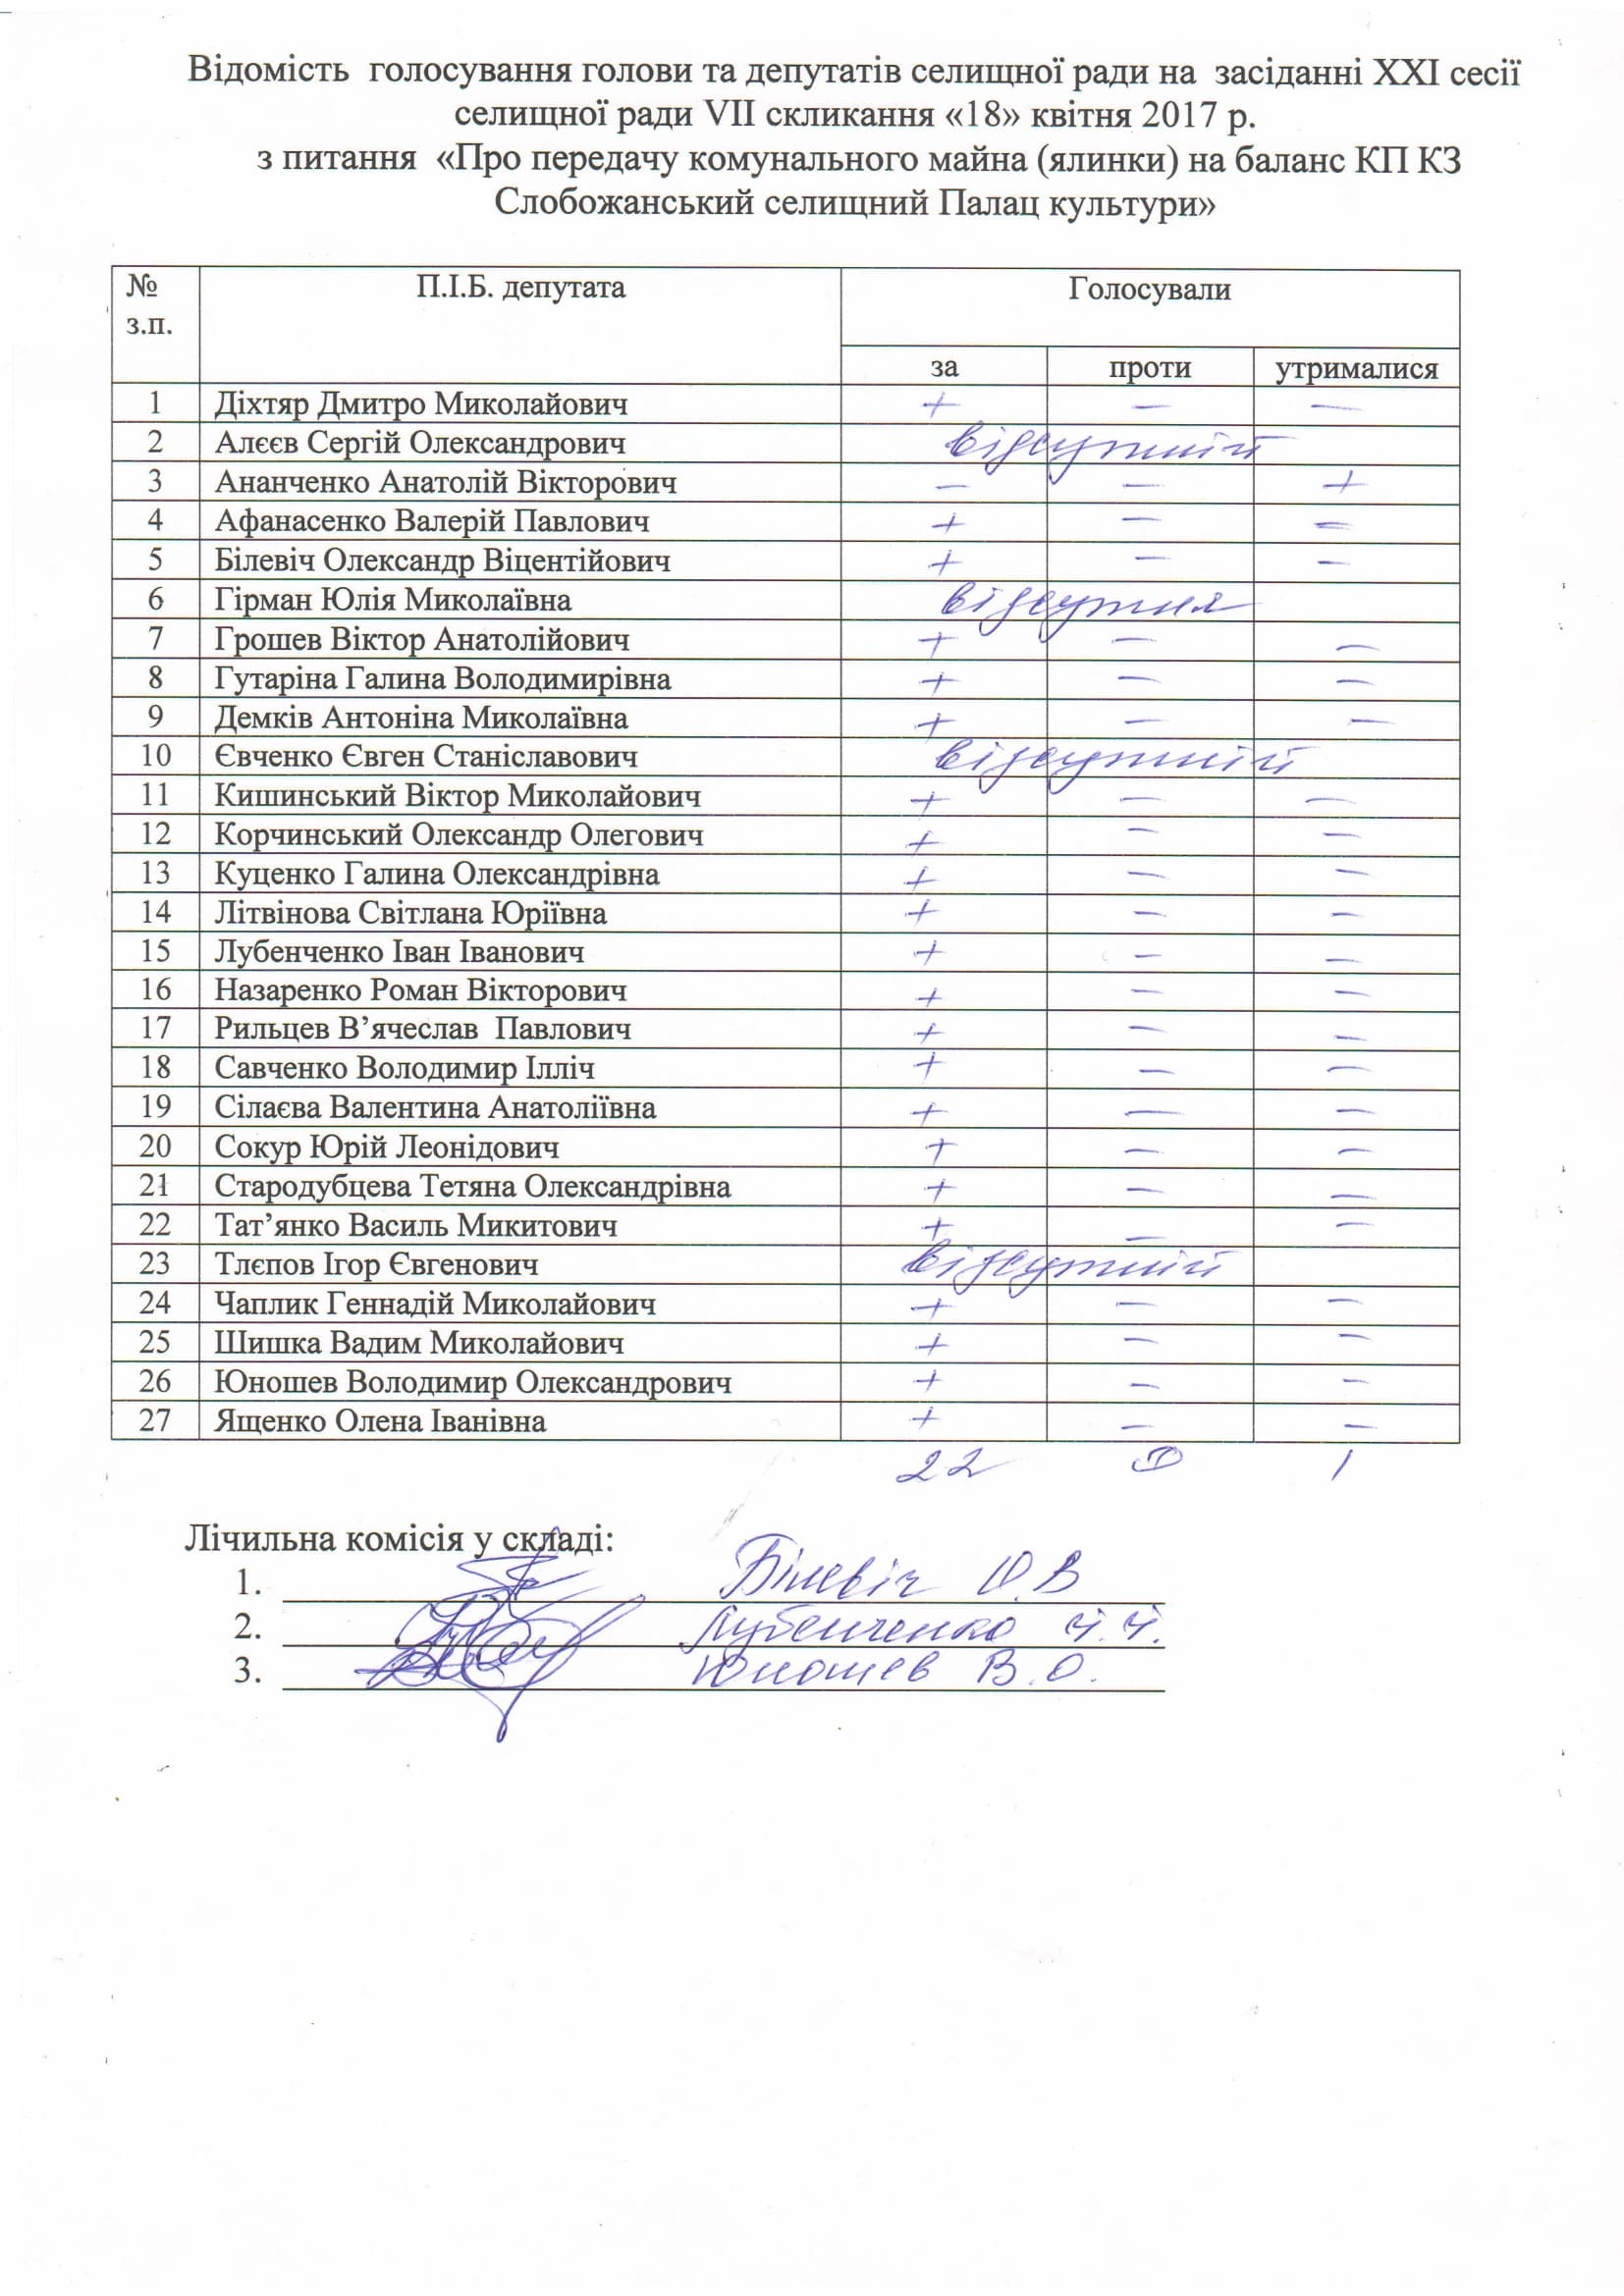 Відомість голосування голови та депутатів селищної ради на засіданні XXI сесії
селищної ради VII скликання «18» квітня 2017 р.
з питання «Про передачу комунального майна (ялинки) на баланс КП КЗ
Слобожанський селищний Палац культури»
№ з.п. П.І.Б. депутата Голосували
за проти утрималися
1 Діхтяр Дмитро Миколайович + – –
2 Алєєв Сергій Олександрович відсутній
3 Ананченко Анатолій Вікторович – – +
4 Афанасенко Валерій Павлович + – –
5 Білевіч Олександр Віцентійович + – –
6 Гірман Юлія Миколаївна відсутня
7 Грошев Віктор Анатолійович + – –
8 Гутаріна Галина Володимирівна + – –
9 Демків Антоніна Миколаївна + – –
10 Євченко Євген Станіславович відсутній
11 Кишинський Віктор Миколайович + – –
12 Корчинський Олександр Олегович + – –
13 Куценко Галина Олександрівна + – –
14 Літвінова Світлана Юріївна + – –
15 Лубенченко Іван Іванович + – –
16 Назаренко Роман Вікторович + – –
17 Рильцев В’ячеслав Павлович + – –
18 Савченко Володимир Ілліч + – –
19 Сілаєва Валентина Анатоліївна + – –
20 Сокур Юрій Леонідович + – –
21 Стародубцева Тетяна Олександрівна + – –
22 Тат’янко Василь Микитович + – –
23 Тлєпов Ігор Євгенович відсутній
24 Чаплик Геннадій Миколайович + – –
25 Шишка Вадим Миколайович + – –
26 Юношев Володимир Олександрович + – –
27 Ященко Олена Іванівна + – –
22 1
Лічильна комісія у складі:
1. Білевіч О.В
2. Лубенченко І.І.
3. Юношев В.О.